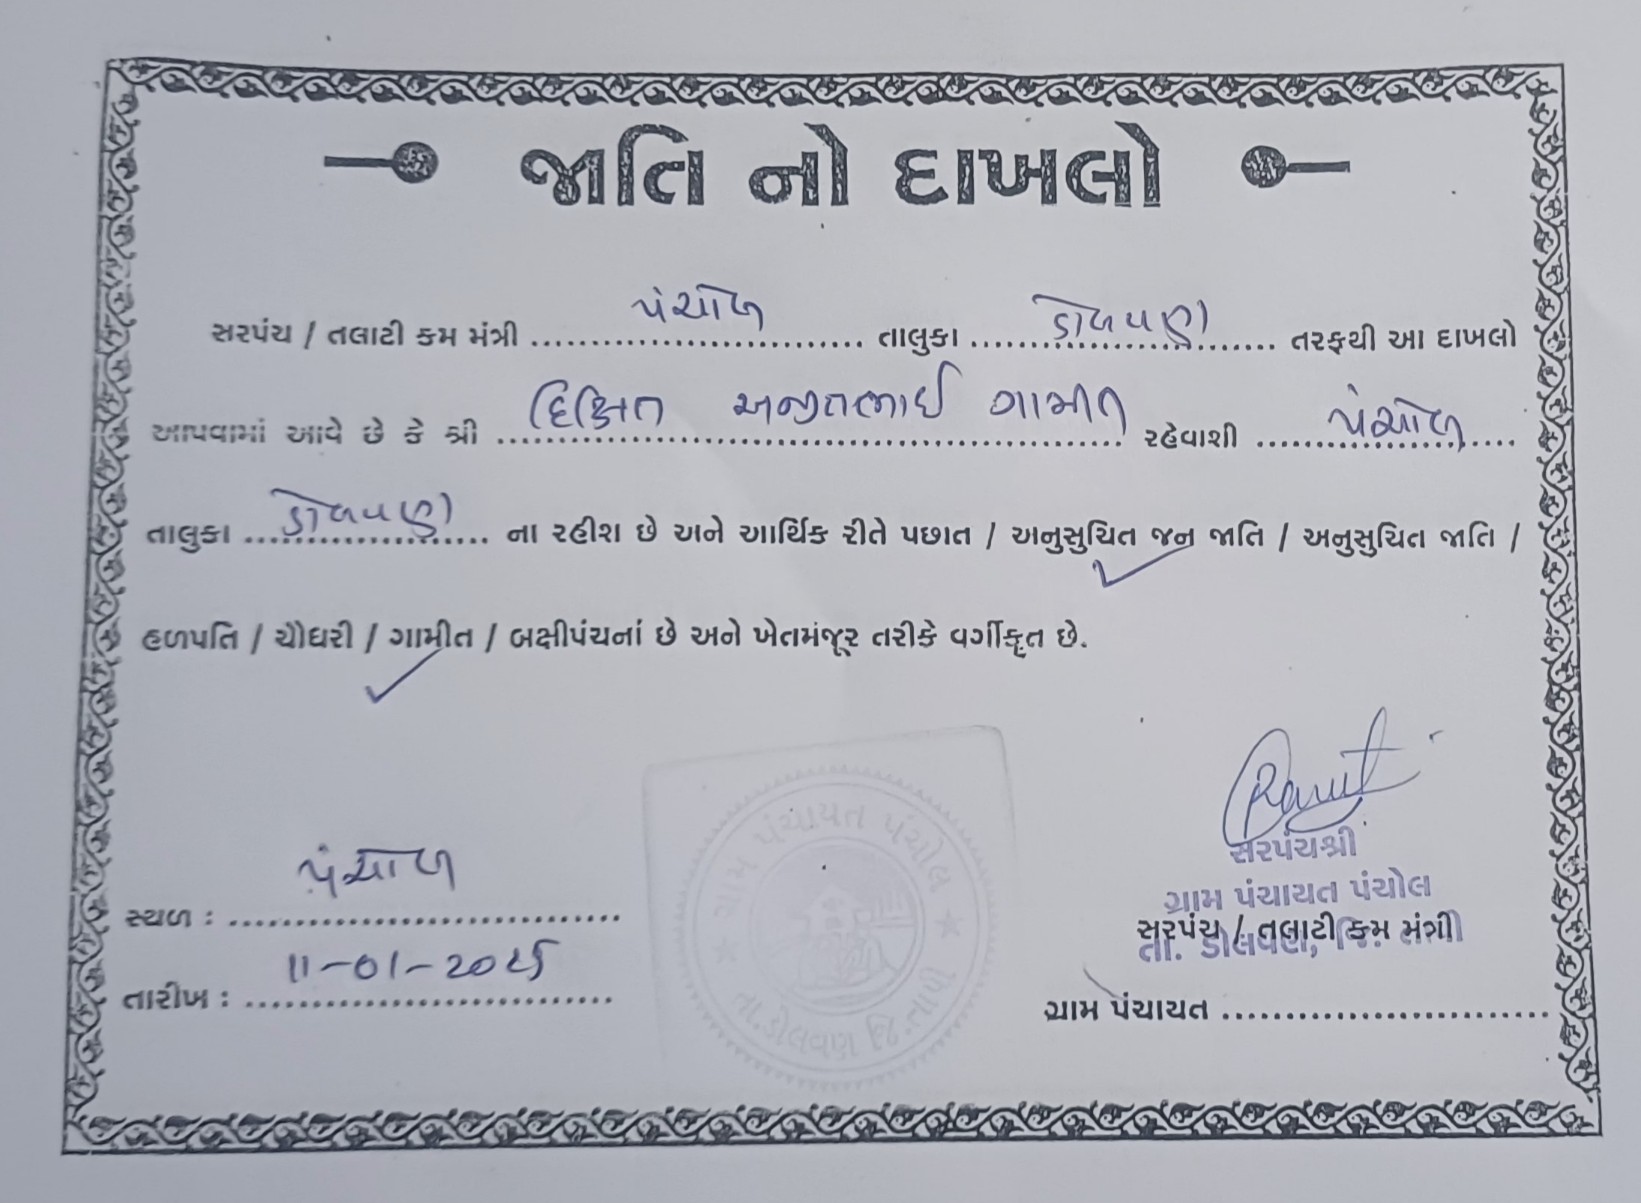 જાતિ નો દાખલો
સરપંચ / તલાટી કમ મંત્રી પંચોળ તાલુકા ડોળવણ તરફથી આ દાખલો
આપવામાં આવે છે કે શ્રી દિક્ષિત અજીતભાઈ ગામીત રહેવાશી પંચોળ
તાલુકા ડોળવણ ના રહીશ છે અને આર્થિક રીતે પછાત / અનુસુચિત જન જાતિ / અનુસુચિત જાતિ /
હળપતિ / ચૌધરી / ગામીત / બક્ષીપંચનાં છે અને ખેતમંજૂર તરીકે વર્ગીકૃત છે.
સરપંચશ્રી
ગ્રામ પંચાયત પંચોલ
સરપંચ / તલાટી કમ મંત્રી
તા. ડોલવણ, જિ. તાપી
ગ્રામ પંચાયત
સ્થળ : પંચોળ
તારીખ : 11-01-2025
ગ્રામ પંચાયત પંચોલ
તા. ડોલવણ જિ. તાપી